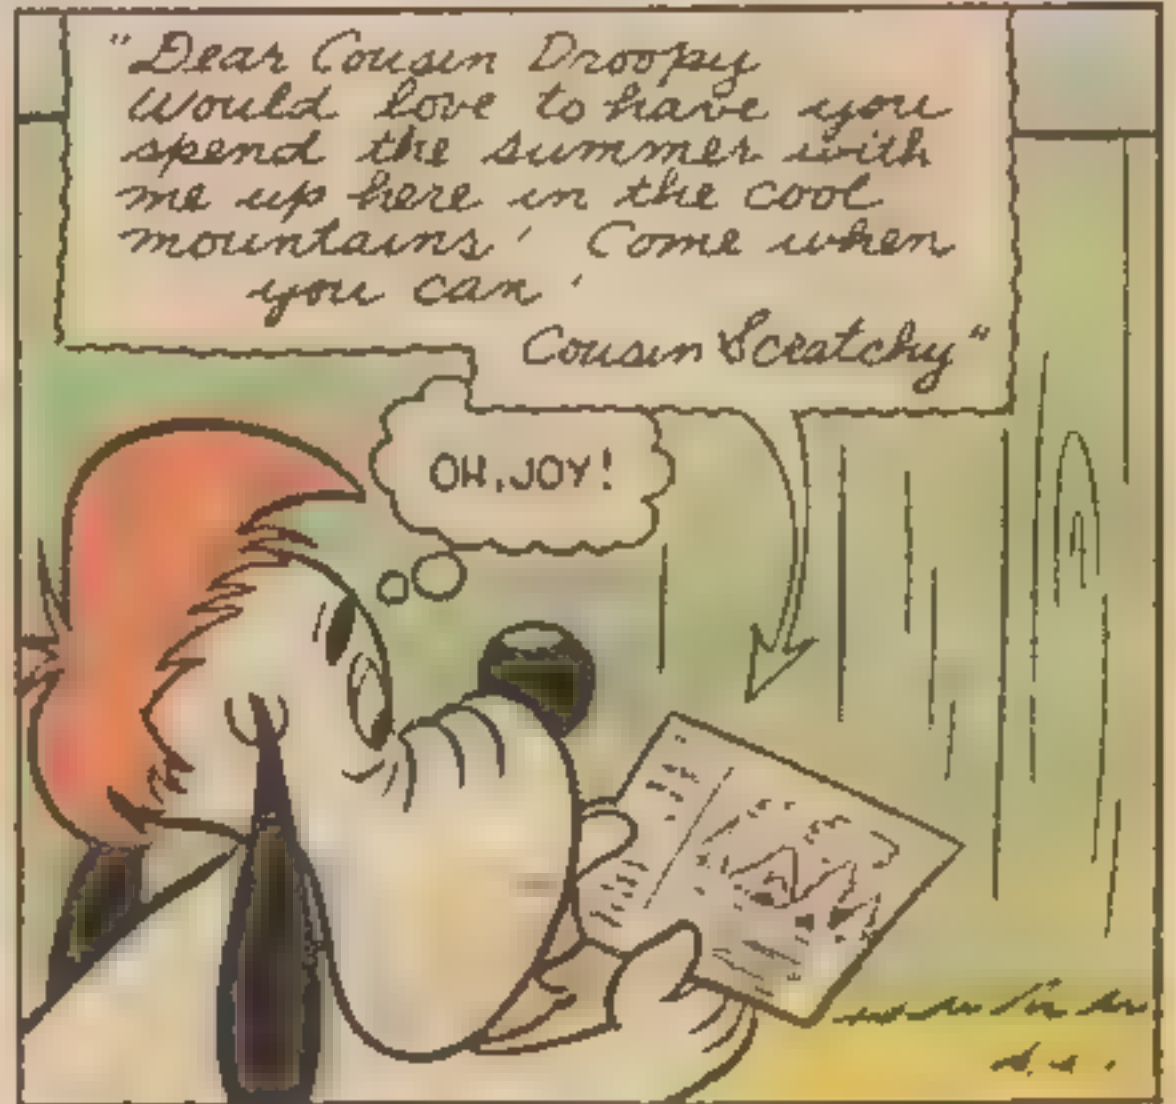 "Dear Cousin Droopy
Would love to have you
spend the summer with
me up here in the cool
mountains! Come when
you can!
Cousin Scratchy"
OH, JOY!